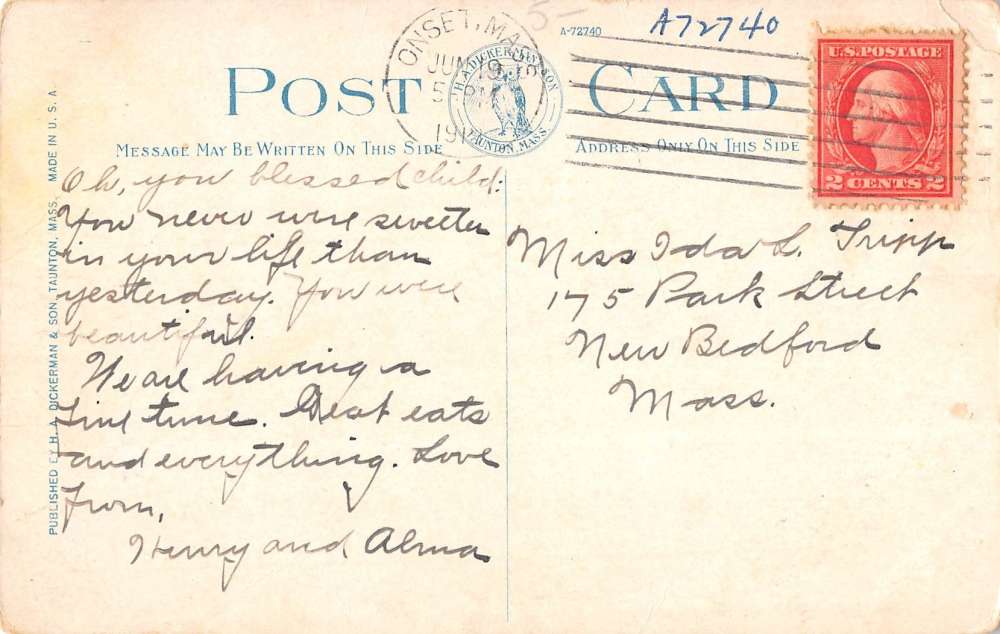 5-
A-72740
A72740
ONSET, MASS.
JUN 19
5 PM
191
H. A. DICKERMAN & SON
TAUNTON, MASS.
U.S. POSTAGE
2 CENTS 2
POST CARD
MESSAGE MAY BE WRITTEN ON THIS SIDE
ADDRESS ONLY ON THIS SIDE
PUBLISHED BY H. A. DICKERMAN & SON, TAUNTON, MASS. MADE IN U. S. A.
Oh, you blessed child:
You never were sweeter
in your life than
yesterday. You were
beautiful.
We are having a
fine time. Great eats
and everything. Love
from,
Henry and Alma
Miss Ida L. Tripp
175 Park Street
New Bedford
Mass.